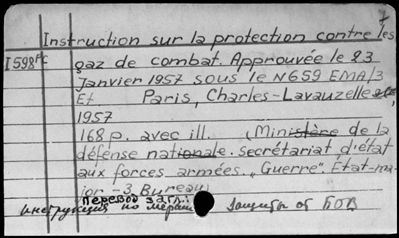 Instruction sur la protection contre les
I598 Fc gaz de combat. Approuvée le 23
Janvier 1957 sous le N659 EMA/3
Et Paris, Charles-Lavauzelle etc,
1957
168 p. avec ill. (Ministère de la
défense nationale. Secrétariat d'état
aux forces armées „Guerre". État-ma-
jor -3 Bureau)
Перевод загл.:
инструкция по мерам защиты от БОВ